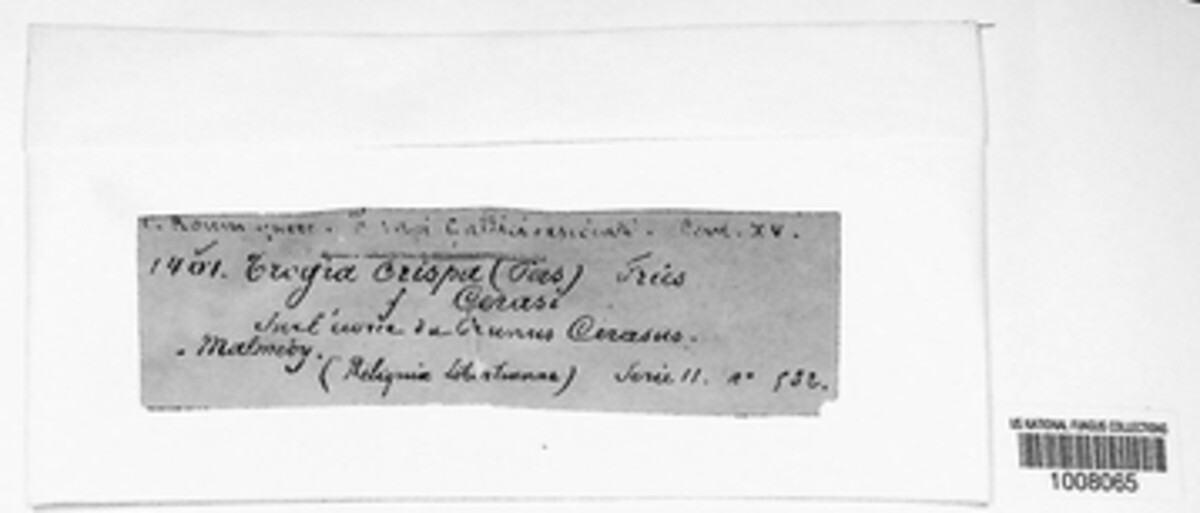 C. Roumeguere. Fungi Gallici exsiccati. Cent. XV.
1401. Trogia crispa (Pers) Fries
f Cerasi
Sur l'écorce du Prunus Cerasus.
Malmédy.
(Reliquiae Libertianae) Serie II. no 532.
US NATIONAL FUNGUS COLLECTIONS
1008065